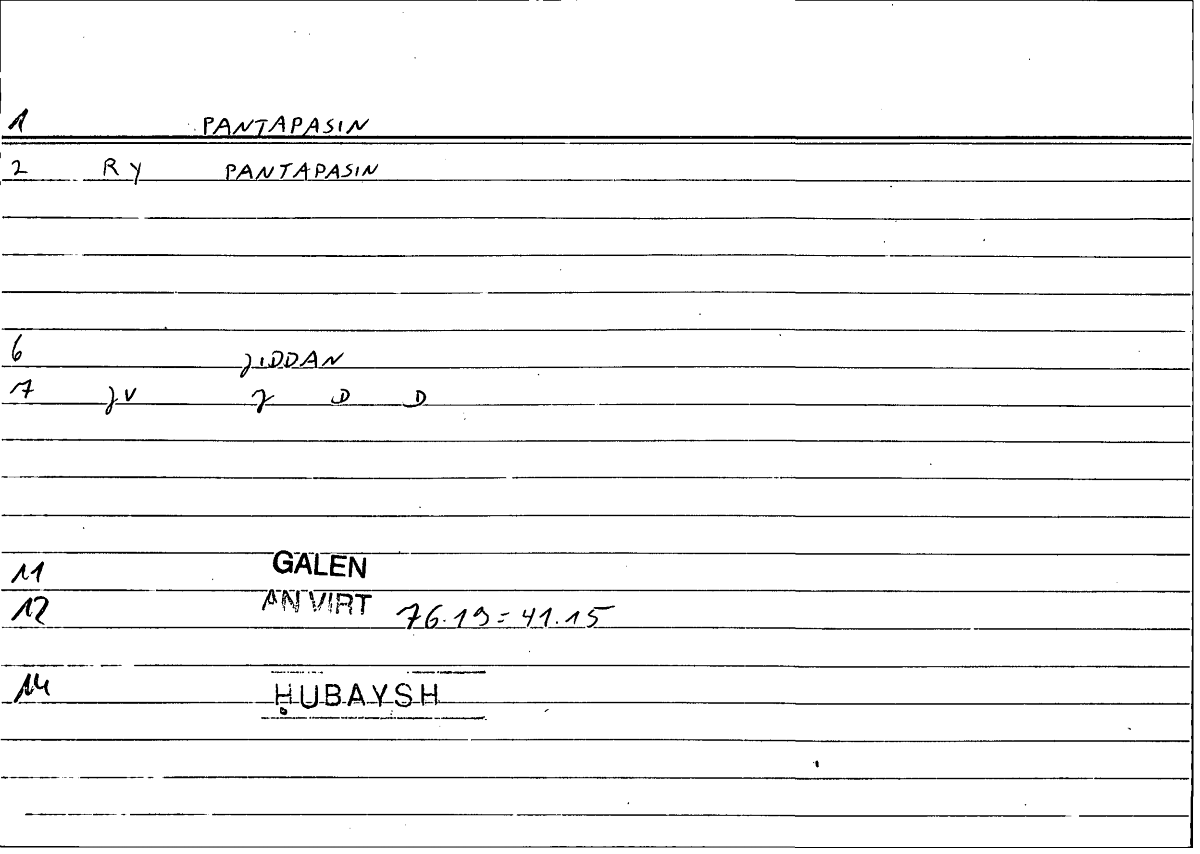 1 PANTAPASIN
2 RY PANTAPASIN
6 ƷIDDAN
7 ƷV Ʒ D D
11 GALEN
12 AN VIRT 76.19 = 41.15
14 ḤUBAYSH